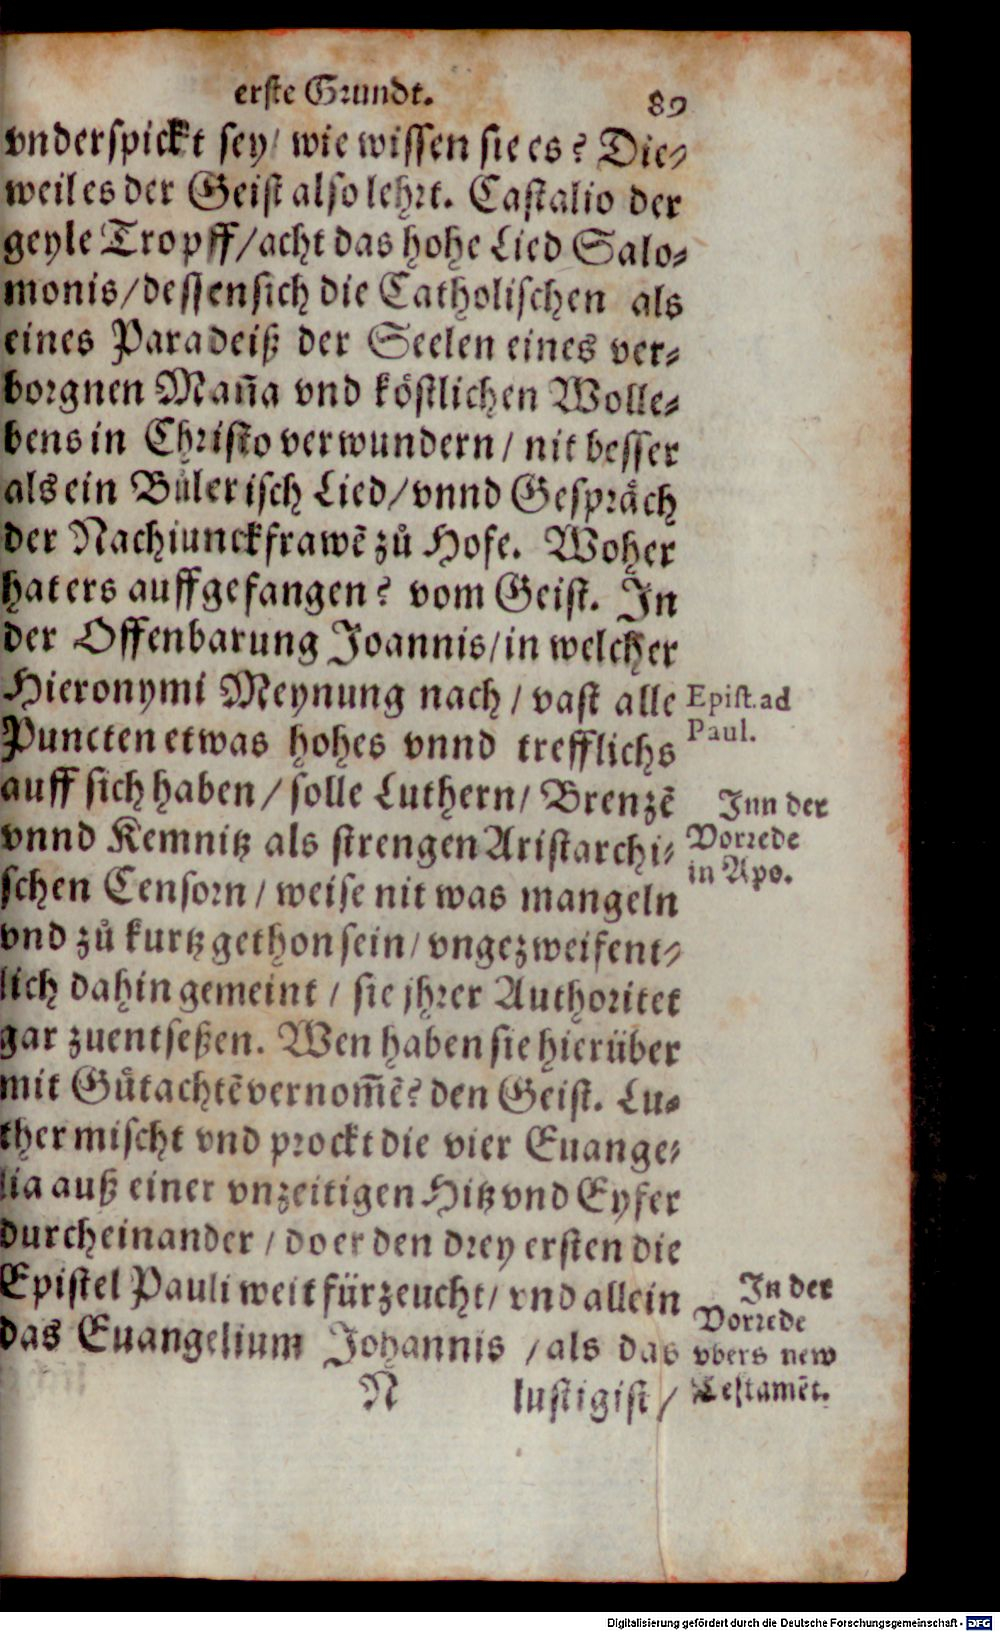 erste Grundt. 89
vnderspickt sey/ wie wissen sie es? Die⸗
weil es der Geist also lehrt. Castalio der
geyle Tropff/acht das hohe Lied Salo⸗
monis/dessen sich die Catholischen als
eines Paradeiß der Seelen eines ver⸗
borgnen Maña vnd köstlichen Wolle⸗
bens in Christo verwundern/ nit besser
als ein Bůlerisch Lied/vnnd Gespräch
der Nachiunckfrawẽ zů Hofe. Woher
hat ers auffgefangen? vom Geist. In
der Offenbarung Joannis/in welcher
Hieronymi Meynung nach/ vast alle
Puncten etwas hohes vnnd trefflichs
auff sich haben/ solle Luthern/ Brenzẽ
vnnd Kemnitz als strengen Aristarchi⸗
schen Censorn/ weise nit was mangeln
vnd zů kurtz gethon sein/ vngezweifent⸗
lich dahin gemeint/ sie jhrer Authoritet
gar zuentseßen. Wen haben sie hierüber
mit Gůtachtẽ vernom̃ẽ? den Geist. Lu⸗
ther mischt vnd prockt die vier Euange⸗
lia auß einer vnzeitigen Hitz vnd Eyfer
durcheinander/ do er den drey ersten die
Epistel Pauli weit fürzeucht/ vnd allein
das Euangelium Johannis /als das
N lustigist/
Epist. ad
Paul.
Inn der
Vorrede
in Apo.
In der
Vorrede
vbers new
Testamẽt.
Digitalisierung gefördert durch die Deutsche Forschungsgemeinschaft - DFG